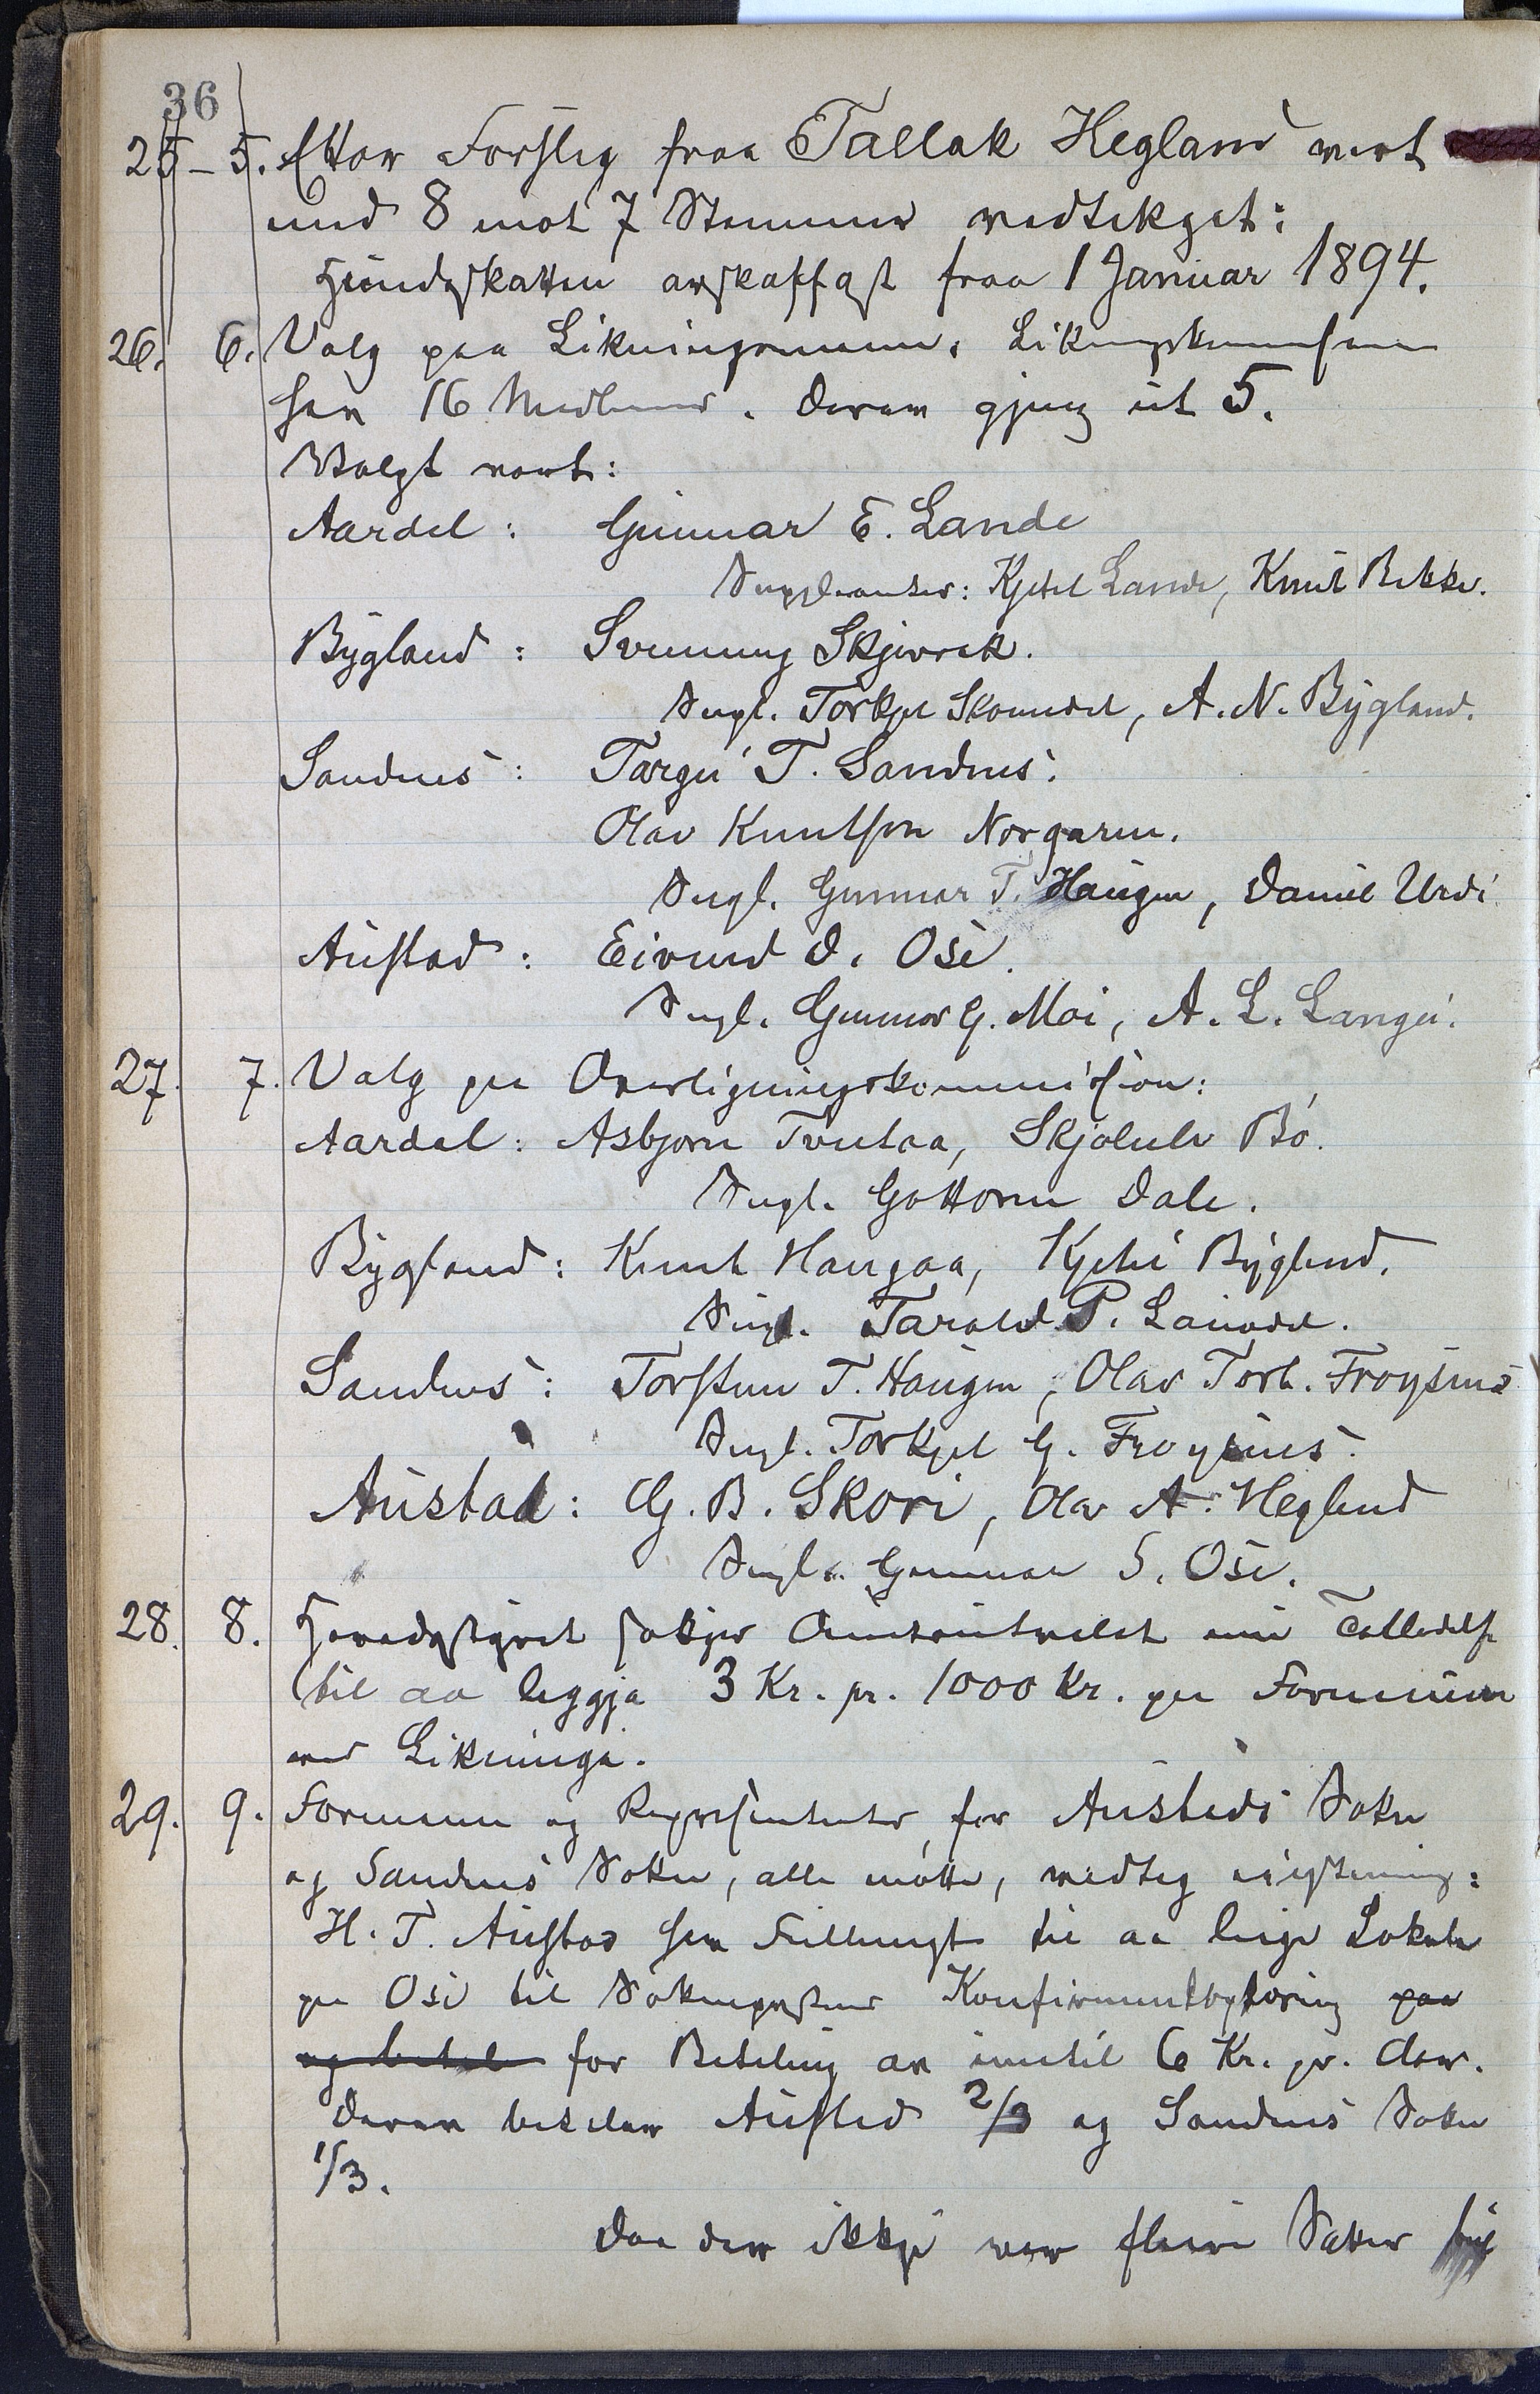 36
25 - 5. Ettar Forslag fraa Tallak Hegland vart
med 8 mot 7 Stemmer vedtekjet:
Hundeskatten avskaffast fraa 1 Januar 1894.
26. 6. Valg paa Likningsmenn. Likningskommisjonen
har 16 Medlemer. Derav gjeng ut 5.
Valgt vart:
Aardal: Gunnar E. Lande
Suppleanter: Kjetel Lande, Knut Bekke.
Bygland: Svenung Skjevrak.
Supl. Torkjel Skomedal, A. N. Bygland.
Sandnes: Targei T. Sandnes.
Olav Knutson Norgaren.
Supl. Gunnar T. Haugen, Daniel Urdi
Austad: Eivind D. Ose.
Supl. Gunnar G. Moi, A. L. Langei.
27. 7. Valg paa Overligningskommission:
Aardal: Asbjorn Tveitaa, Skjolulv Bö.
Supl. Gottorm Dale.
Bygland: Knut Haugaa, Kjetil Bygland.
Supl. Tarald P. Lauvdal.
Sandnes: Torsten T. Haugen, Olav Torb. Froysnes
Supl. Torkjel G. Froysnes.
Austad: G. B. Skori, Olav A. Hegland
Supl. Gunnar S. Ose.
28. 8. Heradsstyret søkjer Amtsutvalet um Talledelse
til aa leggja 3 Kr. pr. 1000 Kr. paa Formuen
ved Likninga.
29. 9. Formenn og Representanter for Austads Sokn
og Sandnes Sokn, alle møtte, vedtog:
H. T. Austad har Fullmagt til aa leiga Lokale
paa Ose til Sokneprestens Konfirmantlæring paa
og betal for Betaling av inntil 6 Kr. pr. Aar.
Derav betalar Austad 2/3 og Sandnes Sokn
1/3.
Daa der ikkje var fleire Saker